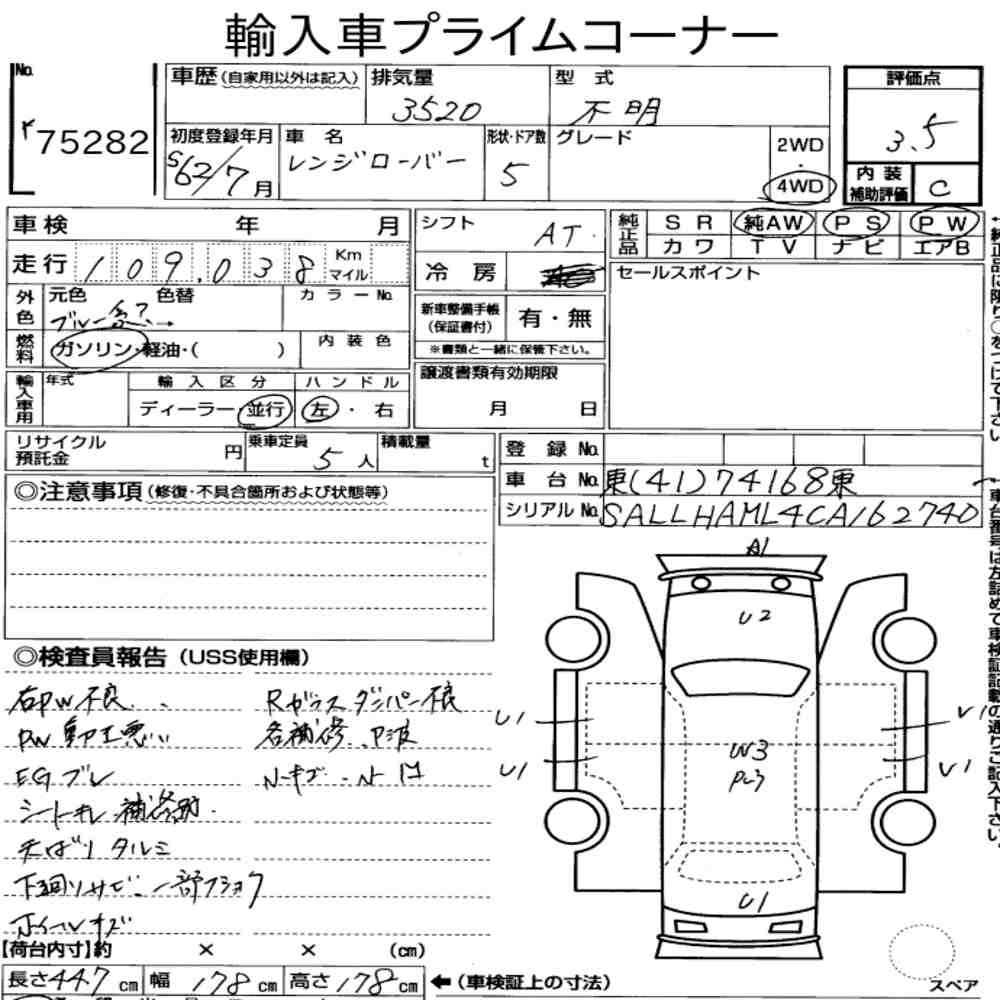 輸入車プライムコーナー
No. 75282
車歴 (自家用以外は記入) 排気量 3520 型式 不明
初度登録年月 S62/7月 車名 レンジローバー 形状・ドア数 5 グレード 2WD ・ 4WD
評価点 3.5
内装補助評価 C
車検 年 月
走行 109,038 Km マイル
外色 元色 色替 カラーNo.
ブルー
燃料 ガソリン・軽油・( ) 内装色
輸入車用 年式 輸入区分 ハンドル
ディーラー・並行 左・右
シフト AT
冷房
新車整備手帳(保証書付) 有・無
※書類と一緒に保管下さい。
譲渡書類有効期限
月 日
純正品 SR 純AW PS PW
カワ TV ナビ エアB
セールスポイント
リサイクル預託金 円 乗車定員 5人 積載量 t
登録No.
車台No. 東(41)74168東
シリアルNo. SALLHAML4CA162740
◎注意事項 (修復・不具合箇所および状態等)
◎検査員報告 (USS使用欄)
右PW不良
PW 動工悪い
EG ブレ
シートキレ 補修跡
天ばりタルミ
下回りサビ 一部フショク
ホイールキズ
Rガラスダンパー不良
各補修、P波
A1
U2
U1
U1
W3
P3
U1
U1
U1
【荷台内寸】約 × × (cm)
長さ 447 cm 幅 178 cm 高さ 178 cm ←(車検証上の寸法)
スペア
純正品に限り○をつけて下さい
車台番号は左詰めで車検証記載の通りご記入下さい。